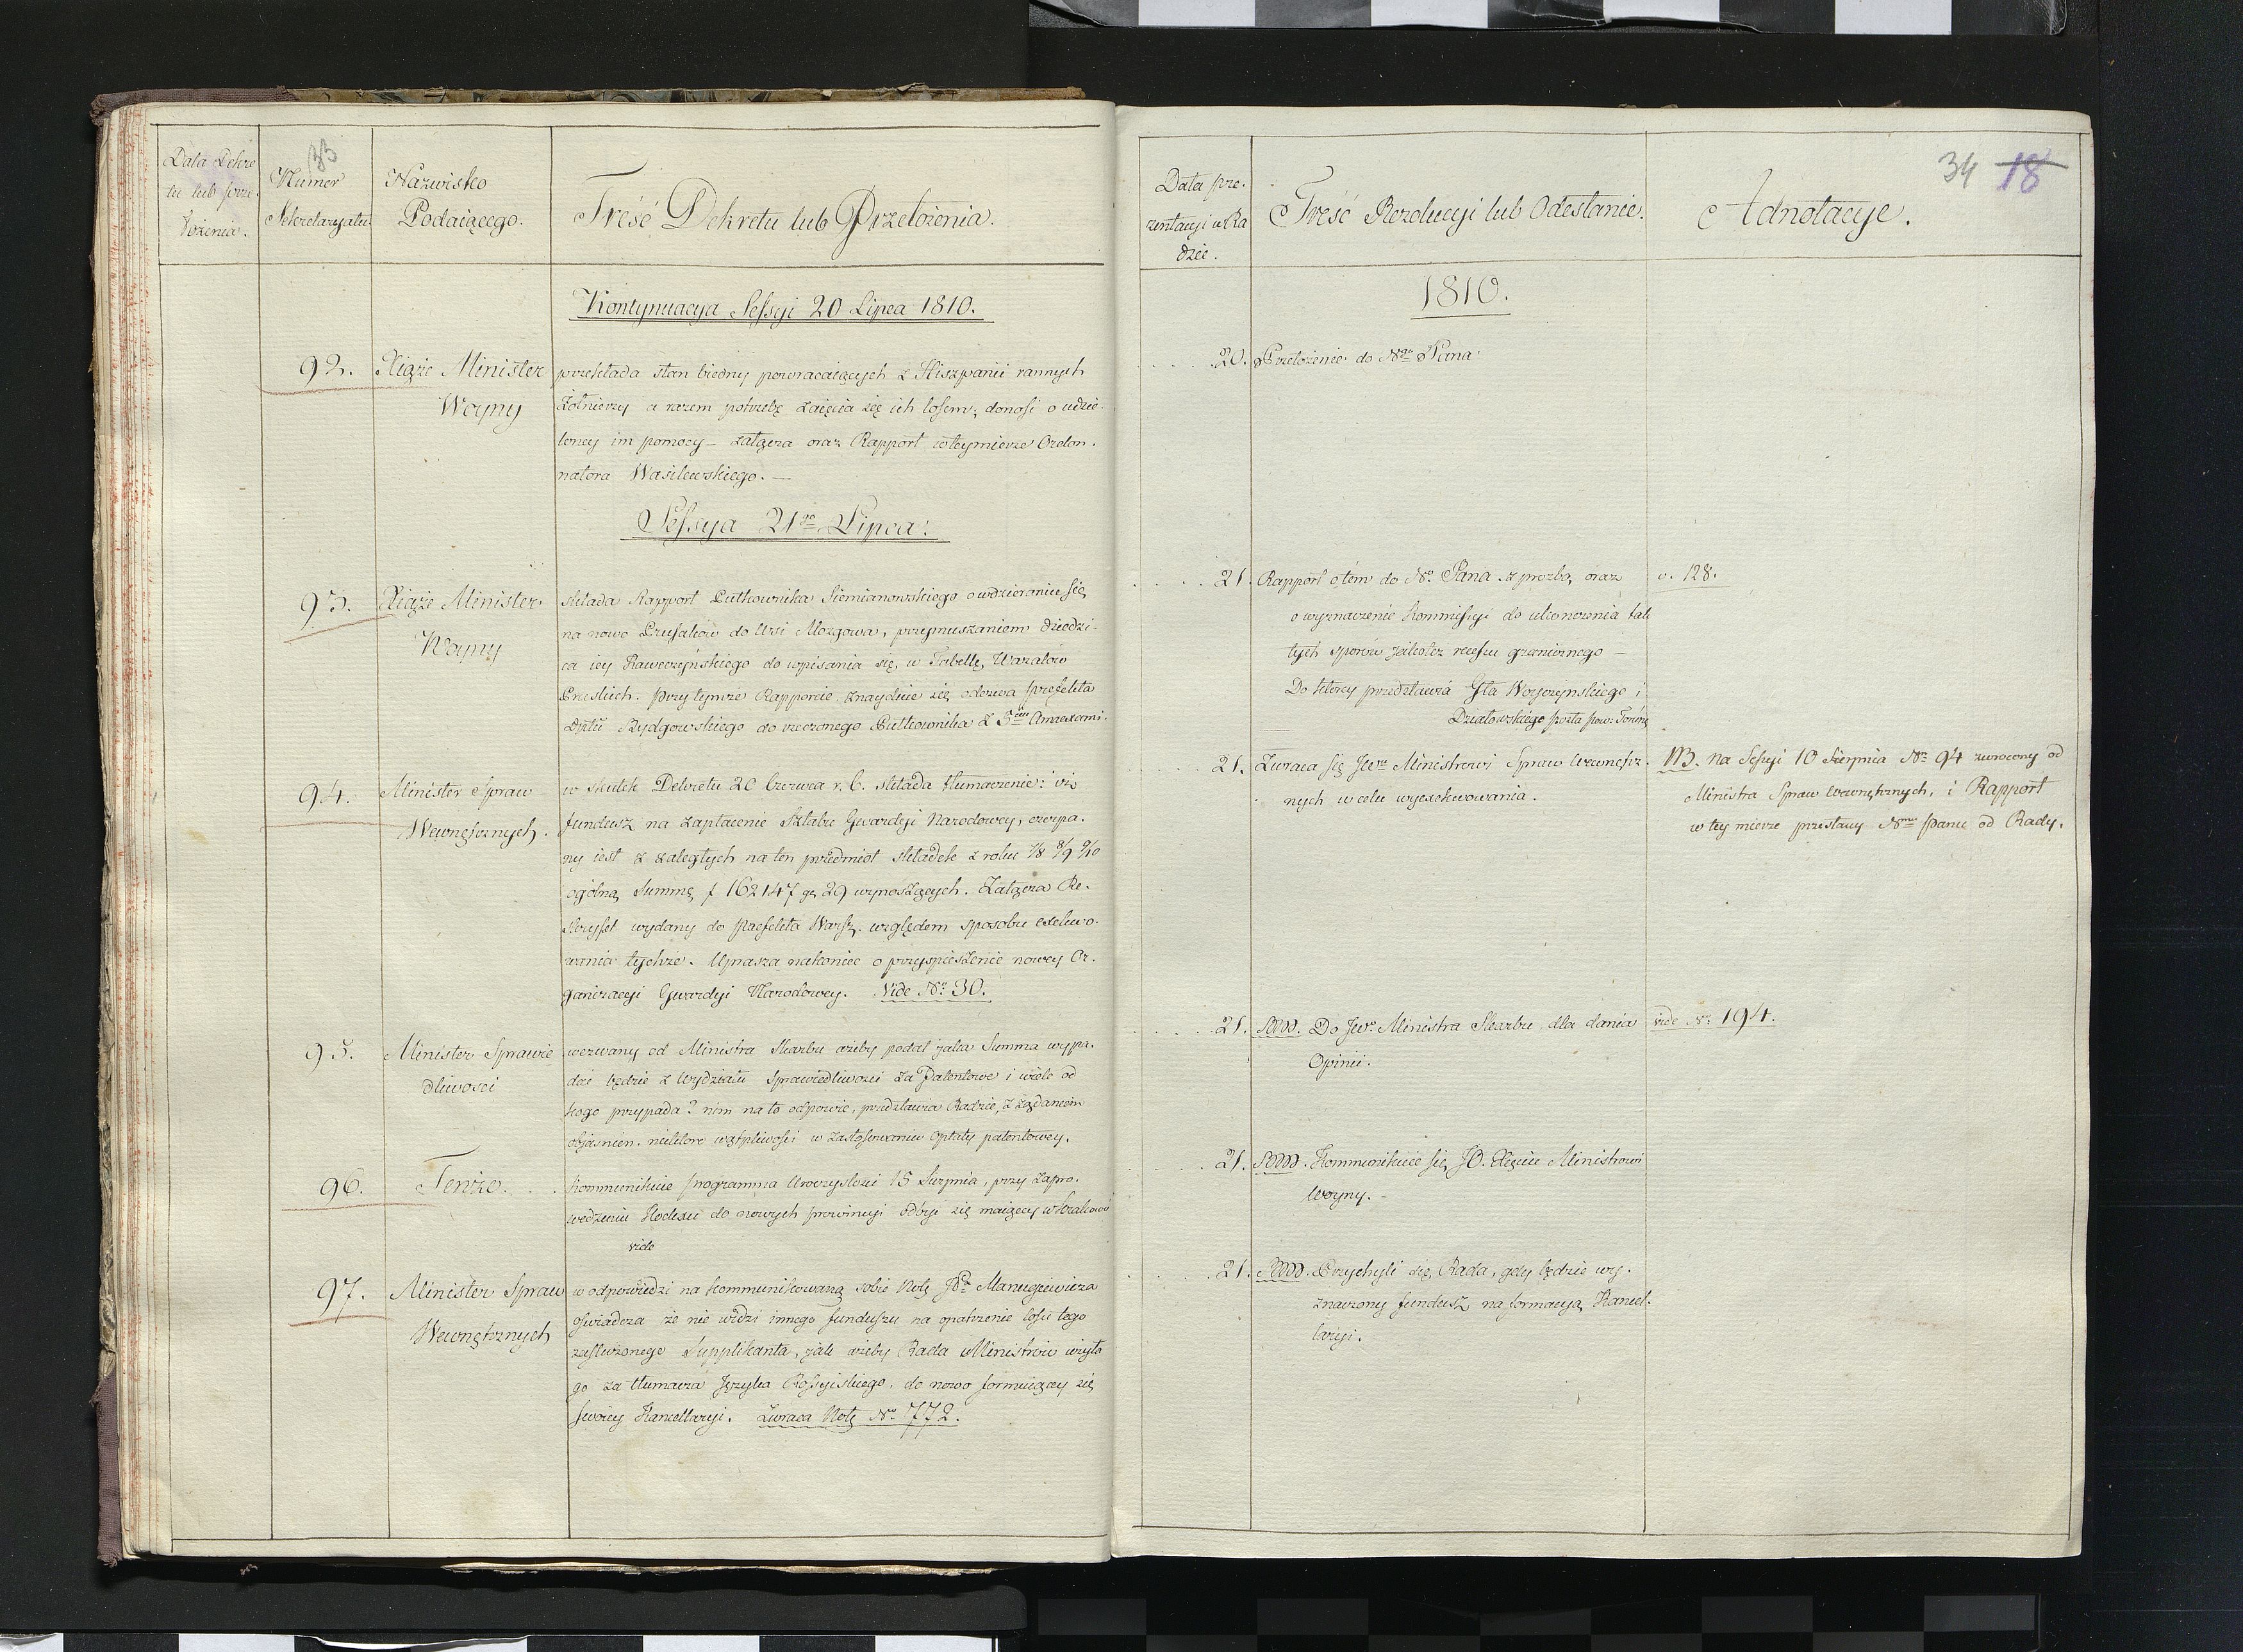 33
Data Dekre
tu lub prze-
łożenia.
Numer
Sekretaryatu
Nazwisko
Podaiącego.
Treść Dekretu lub Przełożenia.
Kontynuacya Sessyi 20 Lipca 1810.
92. Xiąże Minister
Woyny
przekłada stan biedny powracaiących z Hiszpanii rannych
Żołnierzy a razem potrzebę zaięcia się ich losem; donosi o udzie-
loney im pomocy – załącza oraz Rapport wteymierze Ordon-
natora Wasilewskiego. –
Sessya 21go Lipca:
93. Xiąże Minister
Woyny
składa Rapport Pułkownika Siemianowskiego o wdzieraniu się
na nowo Prusaków do Wsi Mozgowa, przymuszaniem dziedzi-
ca iey Kaweczyńskiego do wpisania się w Tabellę Wazalów
Pruskich. Przy tymże Rapporcie znayduie się odezwa prefekta
Dptu Bydgowskiego do rzeczonego Pułkownika z 3ma Annexami.
94. Minister Spraw
Wewnętrznych.
w skutek Dekretu 20 Czerwca r. b. składa tłumaczenie:
fundusz na zapłacenie Sztabu Gwardyi Narodowey, czerpa-
ny iest z zaległych na ten przedmiot składek z roku 7/8 8/9 9/10
ogólną Summę f 162147 gr 29 wynoszących. Załącza Re-
skrypt wydany do Praefekta Warsz. względem sposobu exekwo-
wania tychże. Uprasza nakoniec o przyspieszenie nowey Or-
ganizacyi Gwardyi Narodowey. Vide No 30.
95. Minister Sprawie
dliwosci
wezwany od Ministra Skarbu ażeby podał jaka Summa wypa-
dać będzie z Wydziału Sprawiedliwosci za Patentowe i wiele od
kogo przypada? nim na to odpowie, przedstawia Radzie, z żądaniem
objasnien. niektore wątpliwosci w zastosowaniu opłaty patentowey.
96. Tenże.
kommunikuie programma Uroczystosci 15 Sierpnia, przy zapro-
wadzeniu Kodexu do nowych prowincyi odbyć się maiącey w Krakowie
vide
97. Minister Spraw
Wewnętrznych
w odpowiedzi na kommunikowaną sobie Notę JPa Manugiewicza
oświadcza że nie widzi innego funduszu na opatrzenie losu tego
zasłużonego Supplikanta, jak ażeby Rada Ministrów użyła
go za tłumacza Języka Rossyiskiego, do nowo formuiącey się
swoiey Kancellaryi. Zwraca Notę No 772.
34 18
Data pre-
zentacyi w Ra
dzie.
Treść Rezolucyi lub Odesłanie.
Adnotacye.
1810.
20. Przełożenie do Ngo Pana
21. Rapport o tém do No Pana z prozbą oraz
o wyznaczenie kommissyi do ukończenia tak
tych sporów jakotez recessu granicznego –
Do ktorey przedstawia Gła Woyczynskiego i
Działowskiego posła pow: Toruń
v. 128.
21. Zwraca się JWmu Ministrowi Spraw Wewnętrz-
nych w celu wyexekwowania.
NB. Na Sessyi 10 Sierpnia No 94 zwrocony od
Ministra Spraw Wewnętrznych, i Rapport
w tey mierze przesłany Nmu Panu od Rady.
21. Do JWo Ministra Skarbu dla dania
Opinii.
vide No 194.
21. Kommunikuie się JO. Xięciu Ministrowi
Woyny. –
21. Przychyli się Rada, gdy będzie wy-
znaczony fundusz na formacyą Kancel-
laryi.